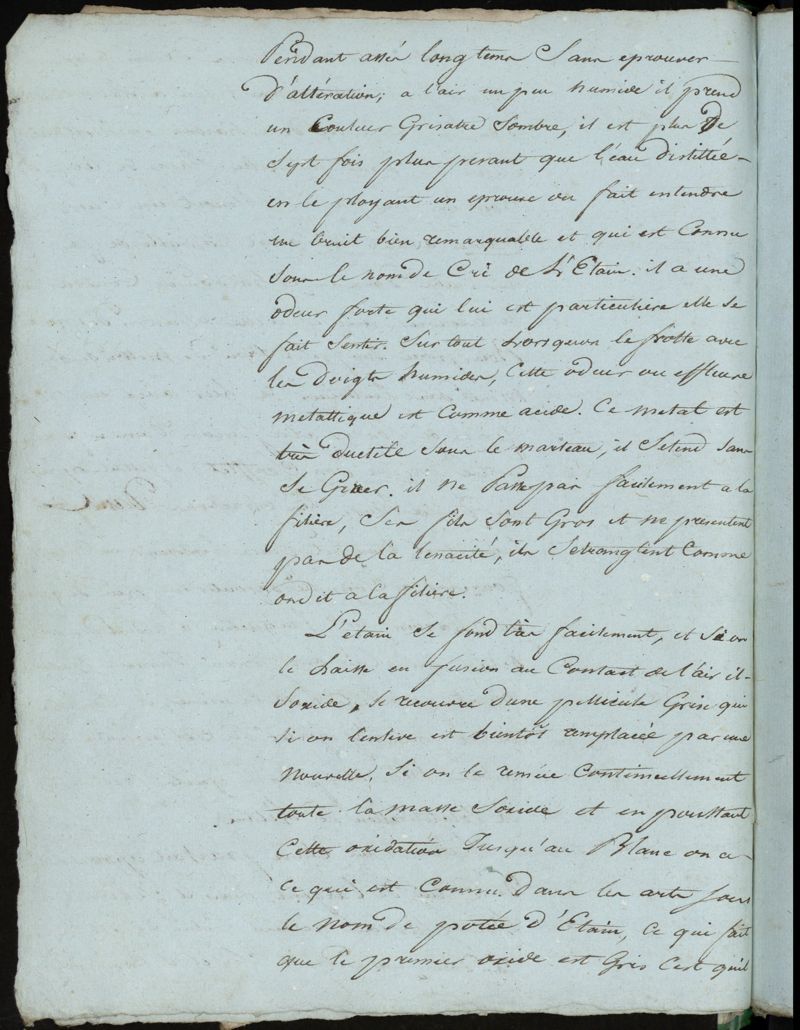 Pendant assés longtems Sans eprouver
d'altération; a l'air un peu humide il prend
un Couleur Grisatre Sombre, il est plus De
Sept fois plus pesant que l'eau distillée
en le ployant un eprouve ou fait entendre
un bruit bien remarquable et qui est Connu
Sous le nom de Cri de L'Etain. il a une
odeur forte qui lui est particuliere elle se
fait Sentir. Sur tout Lorsquon le frotte avec
les Doigts humides, Cette odeur ou effluve
metallique est Comme acide. Ce metal est
très ductile Sous le marteau, il Setend Sans
Se Gercer. il ne Passe pas facilement a la
filière, Ses fils Sont Gros et ne presentent
pas de la tenacité, ils Setranglent Comme
on dit a la filiere.
L'etain Se fond très facilement, et Si on
le Laisse en fusion au Contact de l'air il
Soxide, se recouvre d'une pellicule Grise qui
si on l'enleve est bientôt remplacée par une
nouvelle, Si on le remüe Continuellement
toute la masse Soxide et en poussant
Cette oxidation Jusqu'au Blanc on a
ce qui est Connu Dans les arts sous
le nom De potée d'Etain, Ce qui fait
que le premier oxide est Gris C'est qu'il